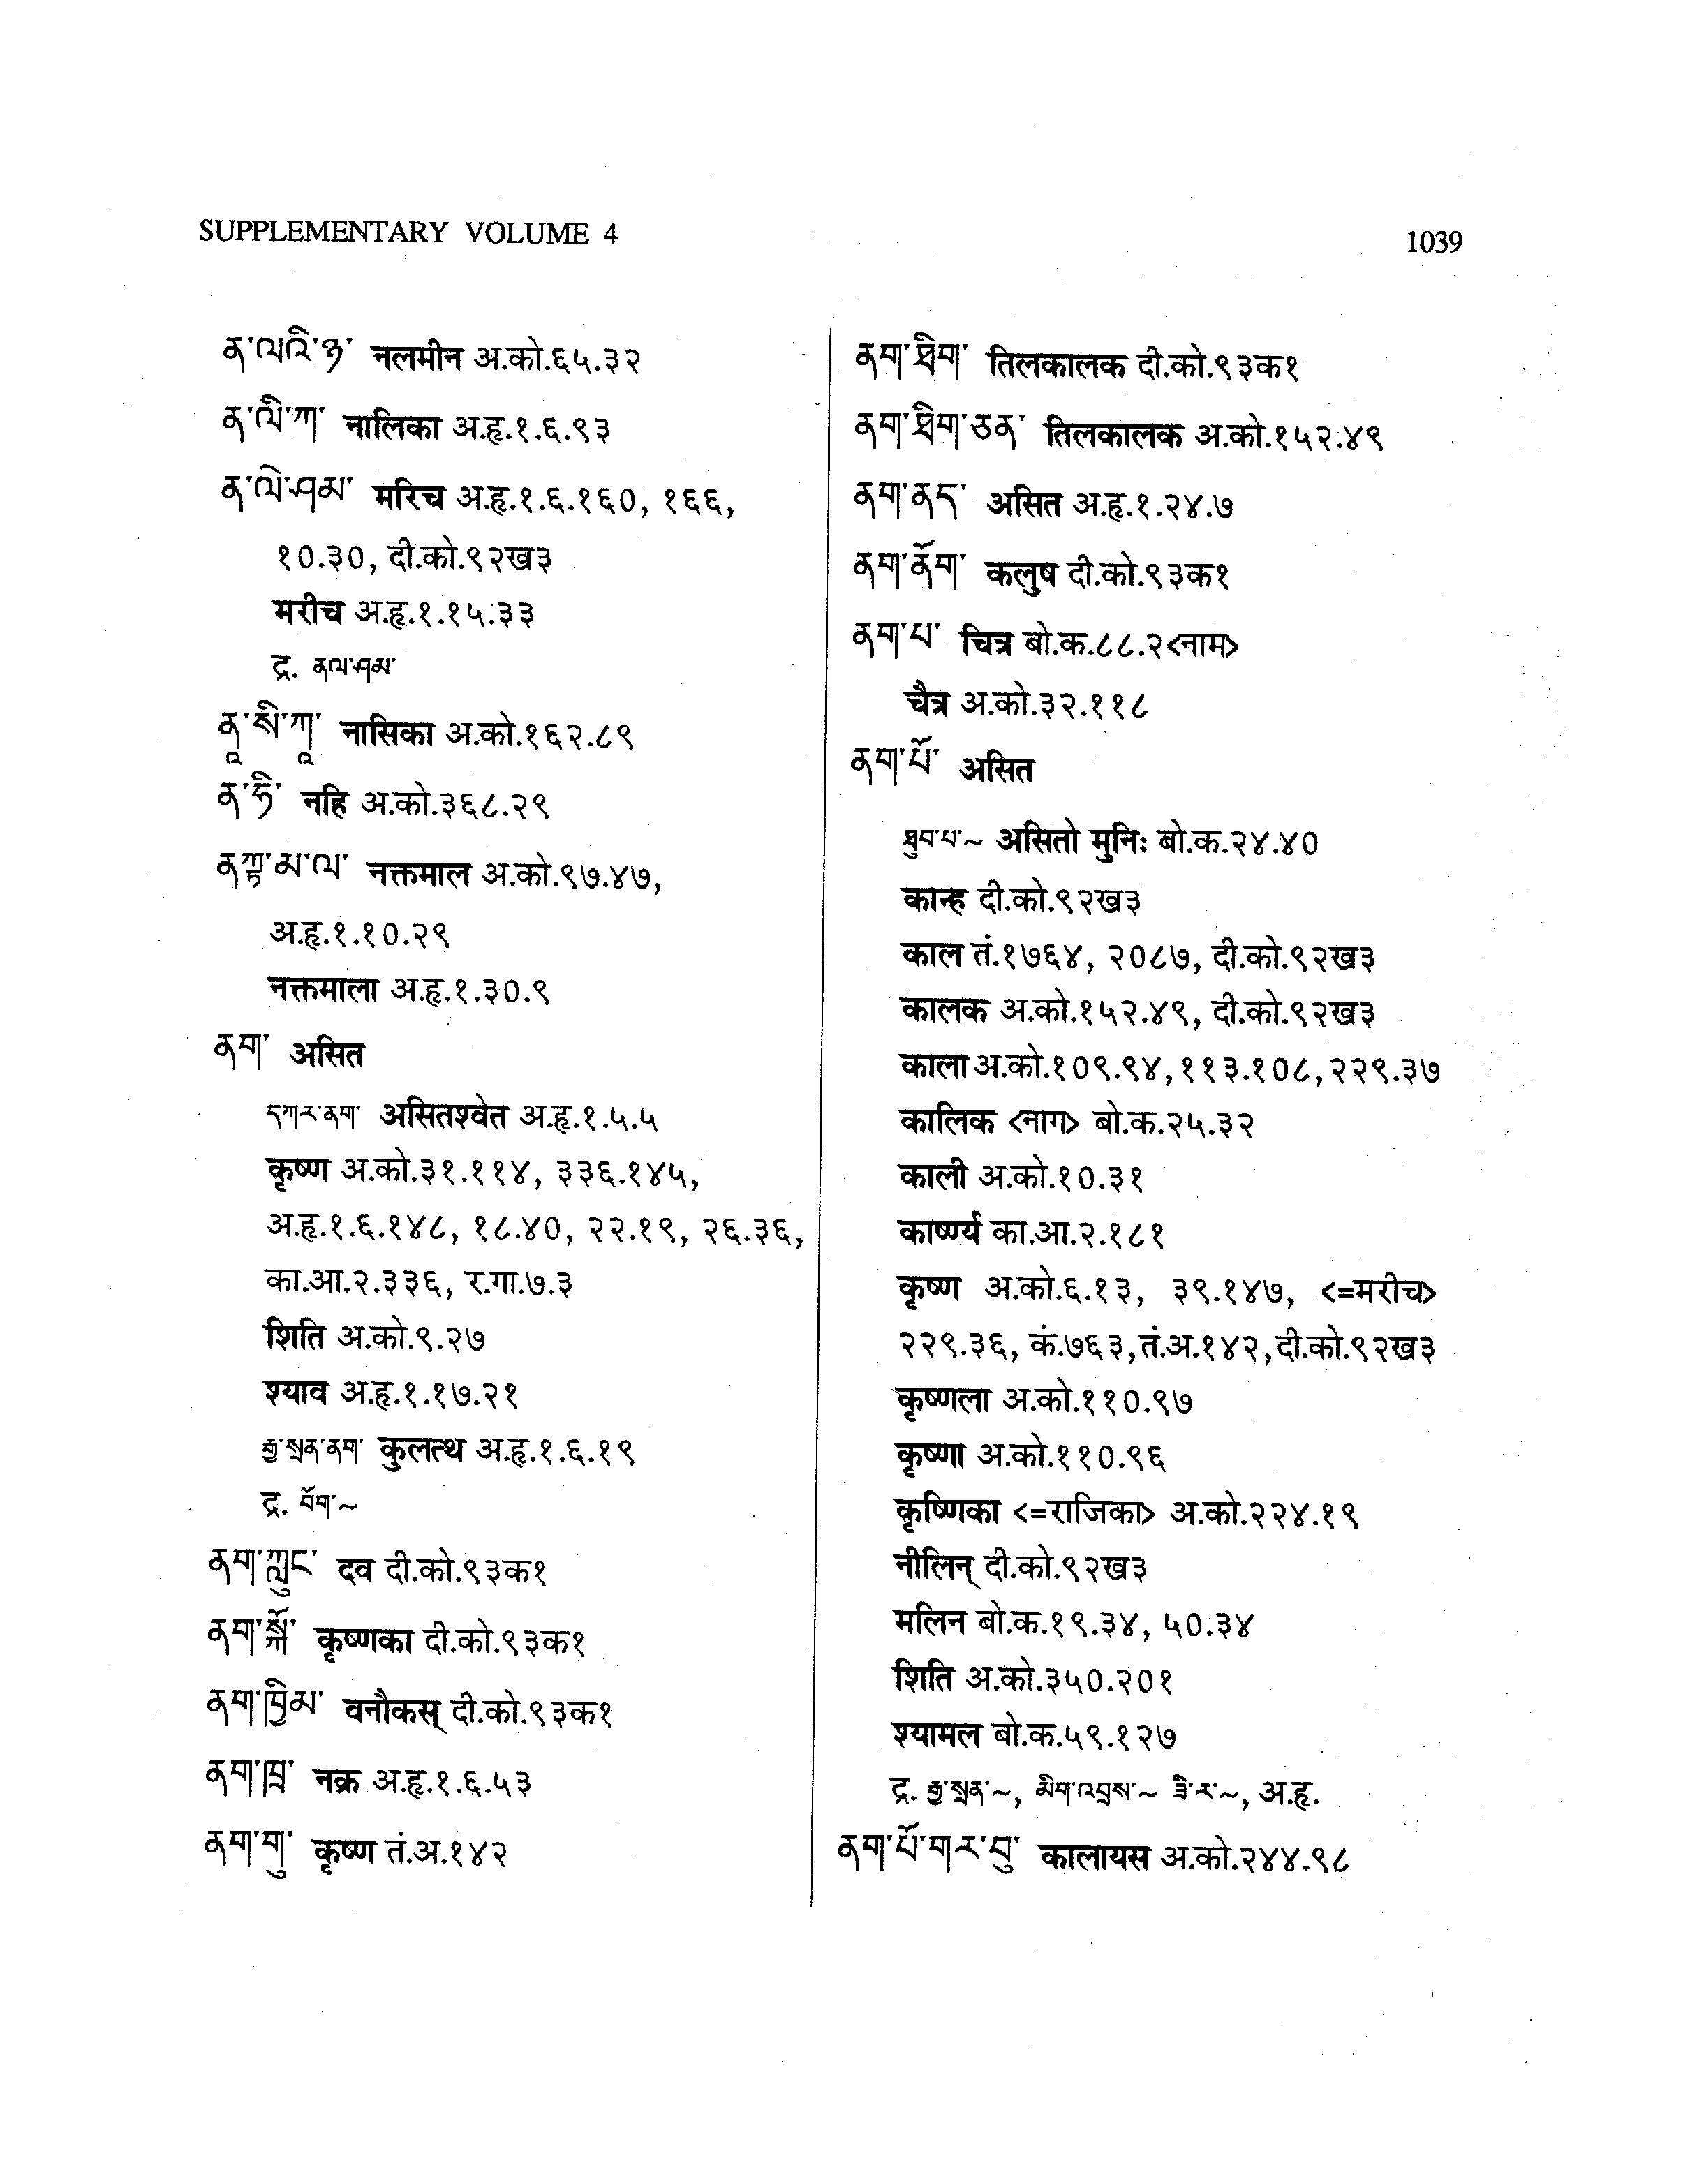 SUPPLEMENTARY VOLUME 4
1039
ན་ལའི་ཉ་ नलमीन अ.को.६५.३२
ན་ལི་ཀ་ नालिका अ.हृ.१.६.९३
ན་ལེ་ཤམ་ मरिच अ.हृ.१.६.१६०, १६६,
१०.३०, दी.को.९२ख३
मरीच अ.हृ.१.१५.३३
द्र. ནལ་ཤམ་
ནཱ་སི་ཀཱ་ नासिका अ.को.१६२.८९
ན་ཧི་ नहि अ.को.३६८.२९
ནཀྟ་མ་ལ་ नक्तमाल अ.को.९७.४७,
अ.हृ.१.१०.२९
नक्तमाला अ.हृ.१.३०.९
ནག་ असित
དཀར་ནག་ असितश्वेत अ.हृ.१.५.५
कृष्ण अ.को.३१.११४, ३३६.१४५,
अ.हृ.१.६.१४८, १८.४०, २२.१९, २६.३६,
का.आ.२.३३६, र.गा.७.३
शिति अ.को.९.२७
श्याव अ.हृ.१.१७.२१
རྒྱ་སྲན་ནག་ कुलत्थ अ.हृ.१.६.१९
द्र. བོག་~
ནག་ཀླུང་ दव दी.को.९३क१
ནག་སྐོ་ कृष्णका दी.को.९३क१
ནག་ཁྱིམ་ वनौकस् दी.को.९३क१
ནག་ཁྲ་ नक्र अ.हृ.१.६.५३
ནག་གུ་ कृष्ण तं.अ.१४२
ནག་ཐིག་ तिलकालक दी.को.९३क१
ནག་ཐིག་ཅན་ तिलकालक अ.को.१५२.४९
ནག་ནད་ असित अ.हृ.१.२४.७
ནག་ནོག་ कलुष दी.को.९३क१
ནག་པ་ चित्र बो.क.८८.२<नाम>
चैत्र अ.को.३२.११८
ནག་པོ་ असित
ཐུབ་པ་~ असितो मुनिः बो.क.२४.४०
कान्ह दी.को.९२ख३
काल तं.१७६४, २०८७, दी.को.९२ख३
कालक अ.को.१५२.४९, दी.को.९२ख३
काला अ.को.१०९.९४,११३.१०८,२२९.३७
कालिक <नाग> बो.क.२५.३२
काली अ.को.१०.३१
कार्ष्ण्य का.आ.२.१८१
कृष्ण अ.को.६.१३, ३९.१४७, <=मरीच>
२२९.३६, कं.७६३,तं.अ.१४२,दी.को.९२ख३
कृष्णला अ.को.११०.९७
कृष्णा अ.को.११०.९६
कृष्णिका <=राजिका> अ.को.२२४.१९
नीलिन् दी.को.९२ख३
मलिन बो.क.१९.३४, ५०.३४
शिति अ.को.३५०.२०१
श्यामल बो.क.५९.१२७
द्र. རྒྱ་སྲན་~, མིག་འབྲས་~ ཟི་ར་~, अ.हृ.
ནག་པོ་གར་བུ་ कालायस अ.को.२४४.९८